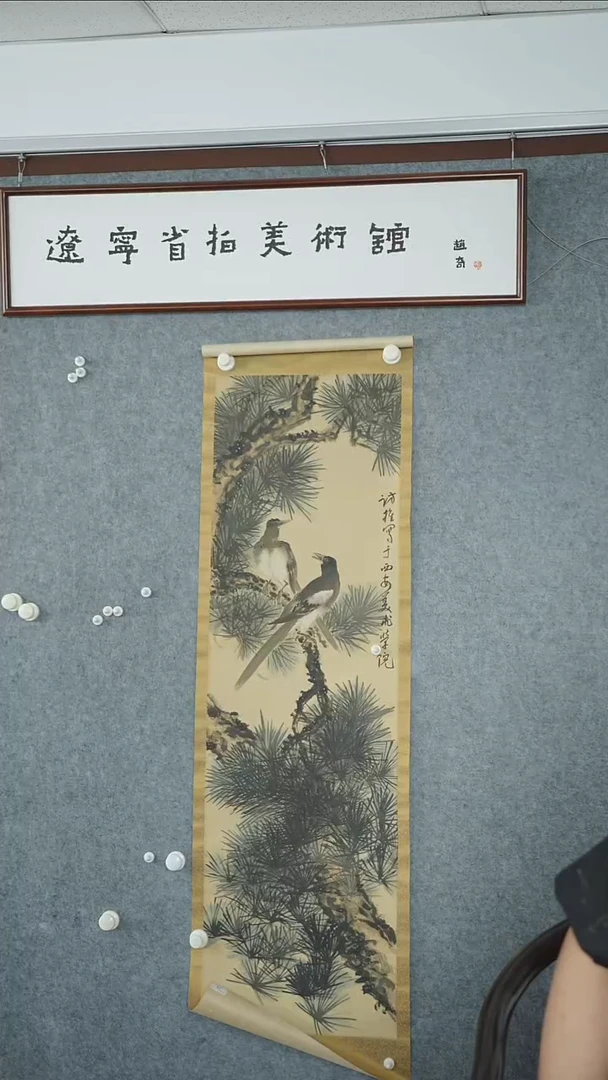 遼寧省拍美術館
趙奇
访樵写于西安美术学院